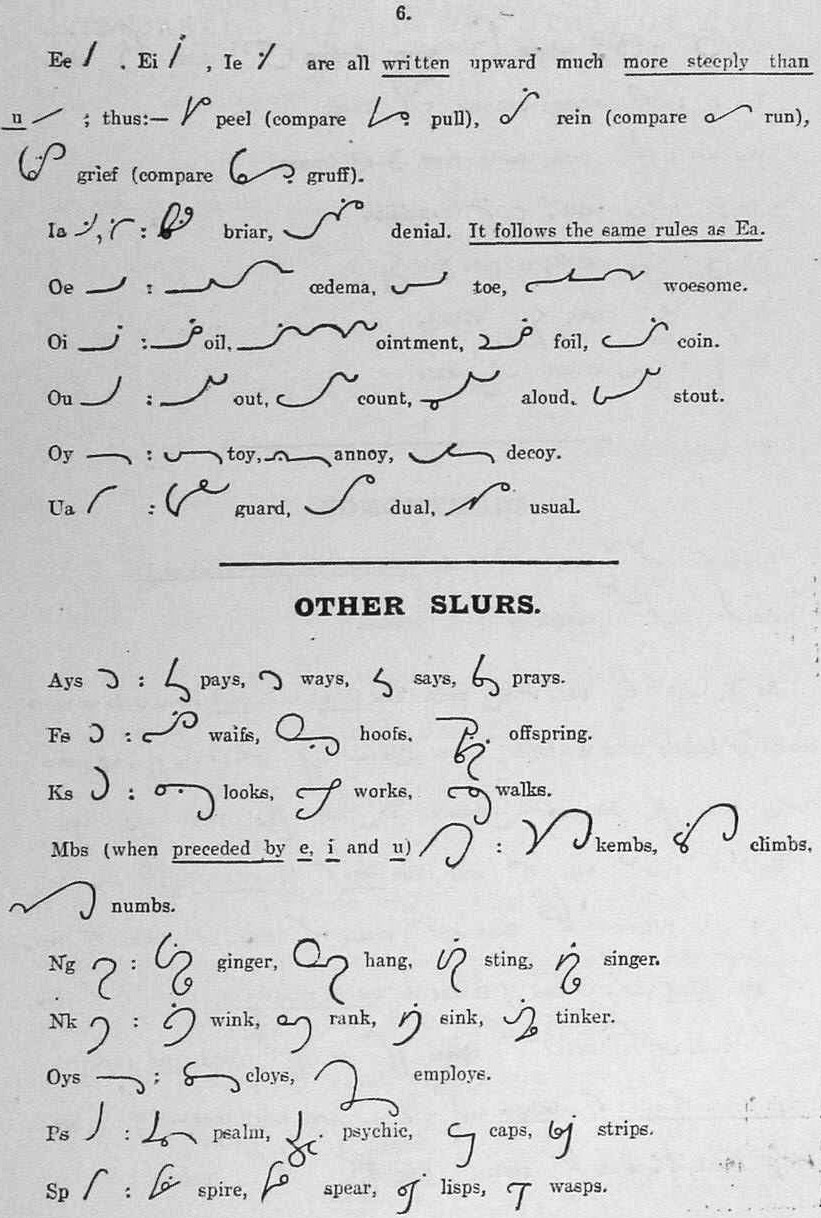 6.
Ee , Ei , Ie are all written upward much more steeply than
u ; thus:— peel (compare pull), rein (compare run),
grief (compare gruff).
Ia , : briar, denial. It follows the same rules as Ea.
Oe : œdema, toe, woesome.
Oi : oil, ointment, foil, coin.
Ou : out, count, aloud, stout.
Oy : toy, annoy, decoy.
Ua : guard, dual, usual.
OTHER SLURS.
Ays : pays, ways, says, prays.
Fs : waifs, hoofs, offspring.
Ks : looks, works, walks.
Mbs (when preceded by e, i and u) : kembs, climbs,
numbs.
Ng : ginger, hang, sting, singer.
Nk : wink, rank, sink, tinker.
Oys : cloys, employs.
Ps : psalm, psychic, caps, strips.
Sp : spire, spear, lisps, wasps.